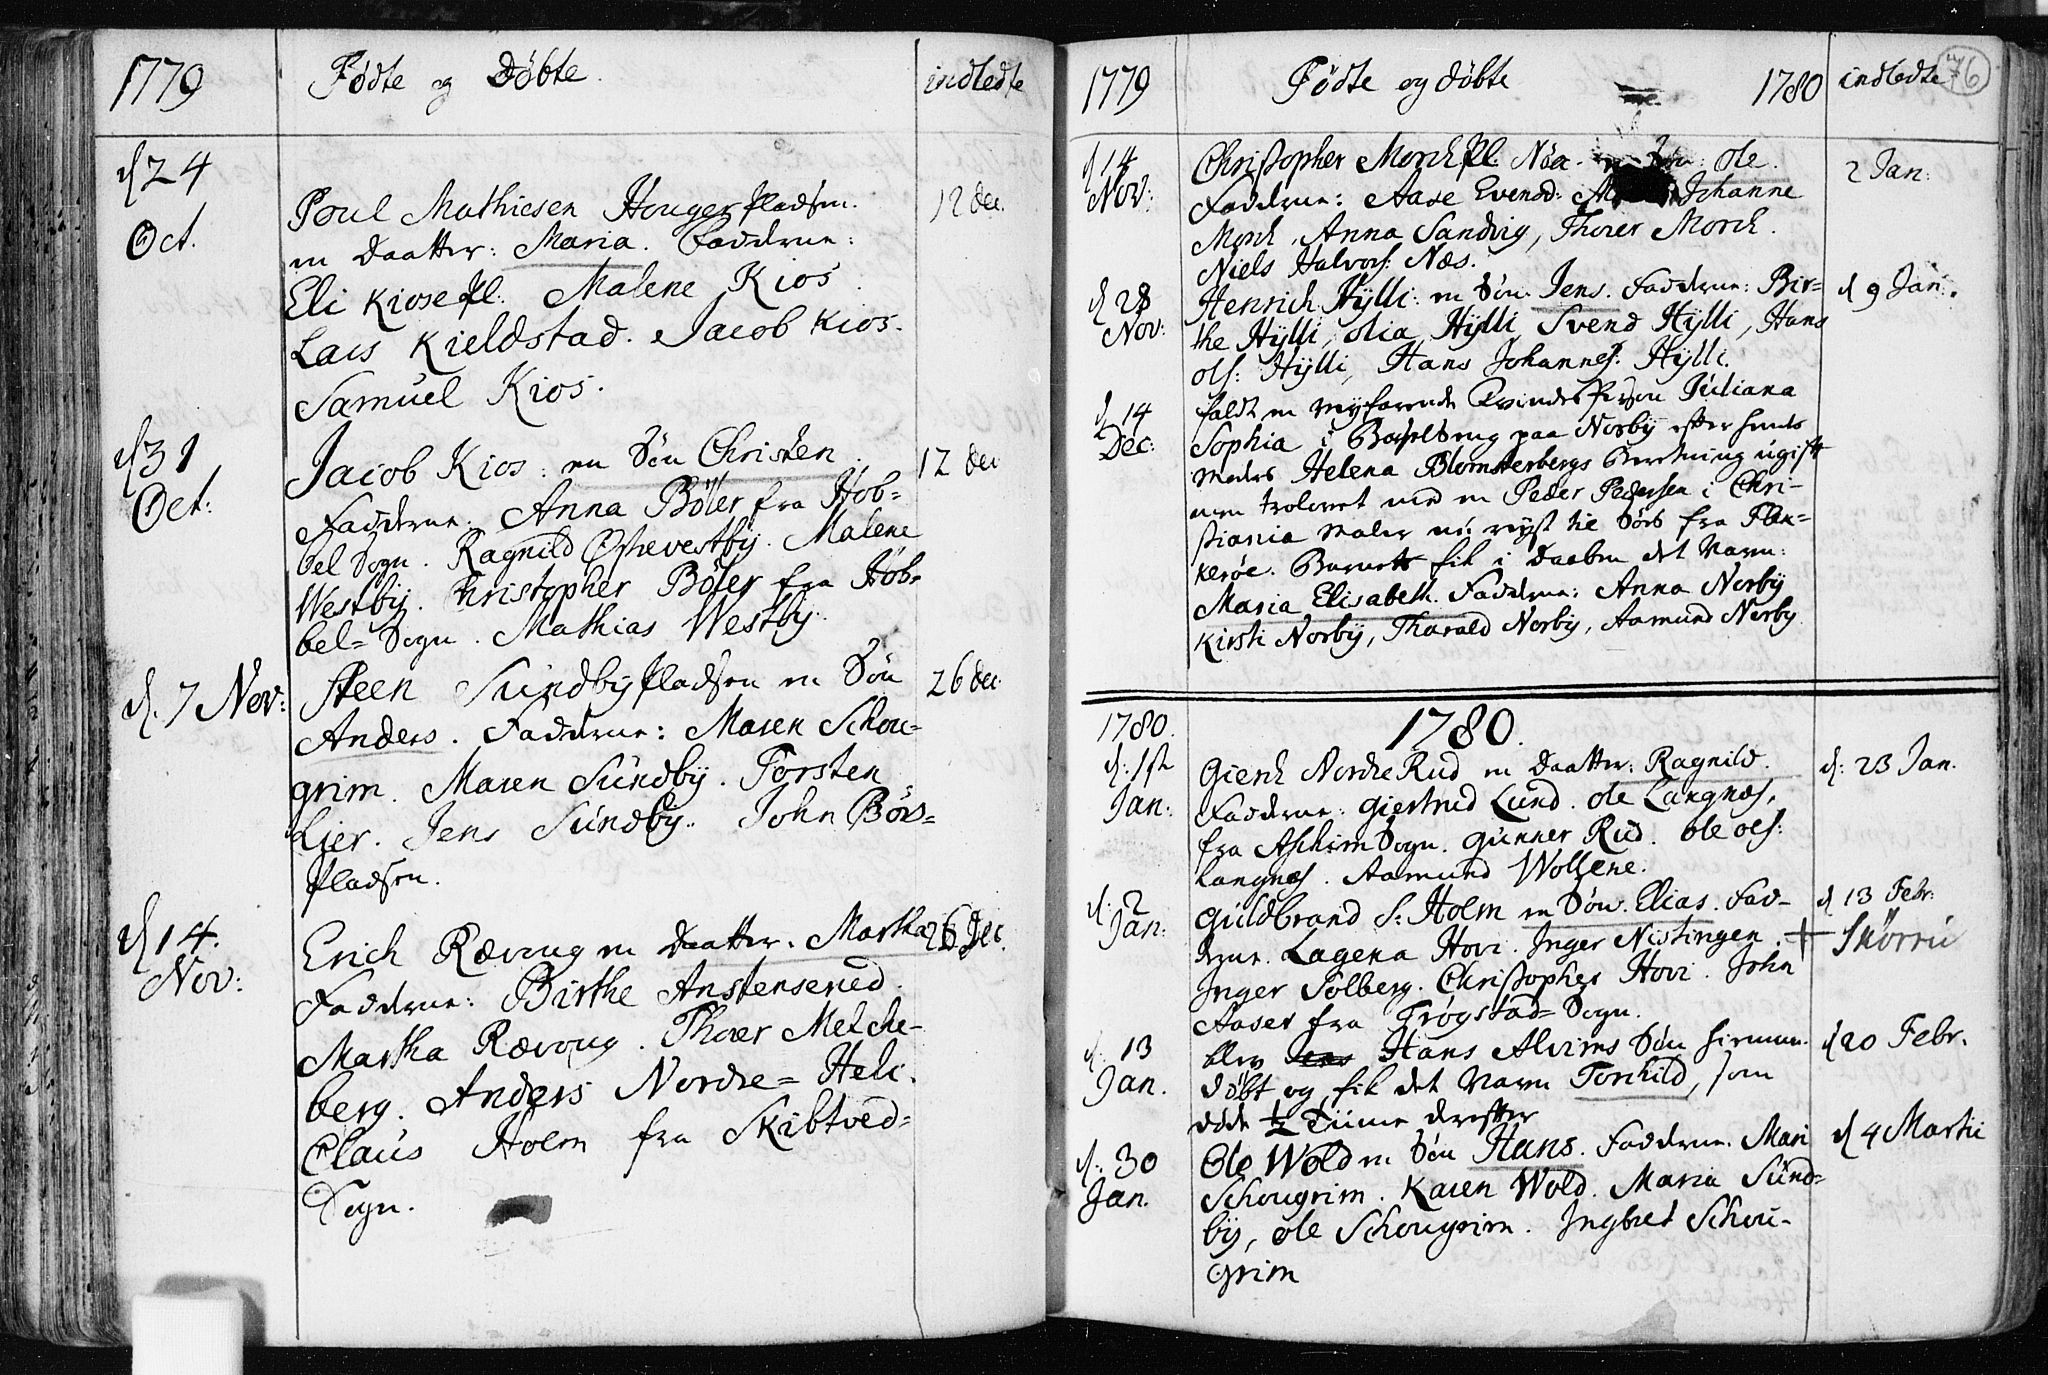 1779
Fødte og Døbte.
indledte
d 24
Oct.
Poul Mathiesen Houger pladsen.
en Daatter: Maria. Faddrene:
Eli Kiose pl: Malene Kios.
Lars Kieldstad. Jacob Kios.
Samuel Kios.
12 Dec.
d 31
Oct:
Jacob Kios: en Søn Christen.
Faddrene: Anna Böler fra Hob=
bel Sogn. Ragnild Østrevestbÿ. Malene
Westbÿ. Christopher Böler fra Höb=
bel= Sogn. Mathias Westbÿ.
12 Dec
d. 7 Nov:
Steen Sundbÿ pladsen en Søn
Anders. Faddrene: Maren Schou=
grim. Maren Sundbÿ. Torsten
Lier. Jens Sundbÿ. John Börs=
pladsen.
26 Dec.
d 14.
Nov:
Erich Rævoug en Daatter. Martha
Faddrene: Birthe Anstensrued.
Martha Rævoug. Thorer Melche=
berg. Anders Nordre= Heli.
Claus Holm fra Skibtved=
Sogn.
26 Dec.
1779
Fødte og døbte
1780
indledte
76
d 14
Nov:
Christopher Morck pl. Søn: Ole.
Faddrene: Aase Evensd: Johanne
Morck, Anna Sandvig, Thorer Morck.
Niels Halvors: Næs.
2 Jan:
d 28
Nov:
Henrich Hÿlli: en Søn Jens. Faddrene: Bir=
the Hÿlli, Olia Hÿlli, Svend Hÿlli, Hans
Ols: Hÿlli, Hans Johannes: Hÿlli.
d 9 Jan:
d 14
Dec:
faldt en reysende Qvindes Person Juliana
Sophia i Barselseng paa Norbÿ efter hendes
Moders Helena Blomsterbergs Beretning ugift
men trolovet med en Peder Pedersen i Chri=
stiania Maler nu reyst til Søes fra Flek=
kerøe. Barnet fik i Daaben det Navn:
Maria Elisabeth. Faddrene: Anna Norbÿ
Kirsti Norbÿ, Tharald Norbÿ, Aamund Norbÿ
1780.
1780.
d: 1ste
Jan:
Gierck Nordre Rud en Daatter: Ragnild.
Faddrene: Giertrud Lund. Ole Langnæs,
fra Aschim Sogn. Gunner Rud. Ole Ols:
Langnæs. Aamund Wollene.
d: 23 Jan.
d: 2
Jan:
Guldbrand S: Holm en Søn. Elias. Fad-
drene. Lagena Hovi. Inger Nistingen.
Inger Solberg. Christopher Hovi. John
Aaser fra Trøgstad= Sogn.
d 13 Febr:
d. 13
Jan.
blev Hans Alvims Søn hiemme-
døbt og fik det Navn Torkild, som
døde ½ Tiime derefter
d 20 Febr.
d: 30
Jan.
Ole Wold en Søn Hans. Faddrene. Mari
Schougrim. Karen Wold. Maria Sund=
bÿ, Ole Schougrim. Ingbret Schou-
grim
d 4 Martii